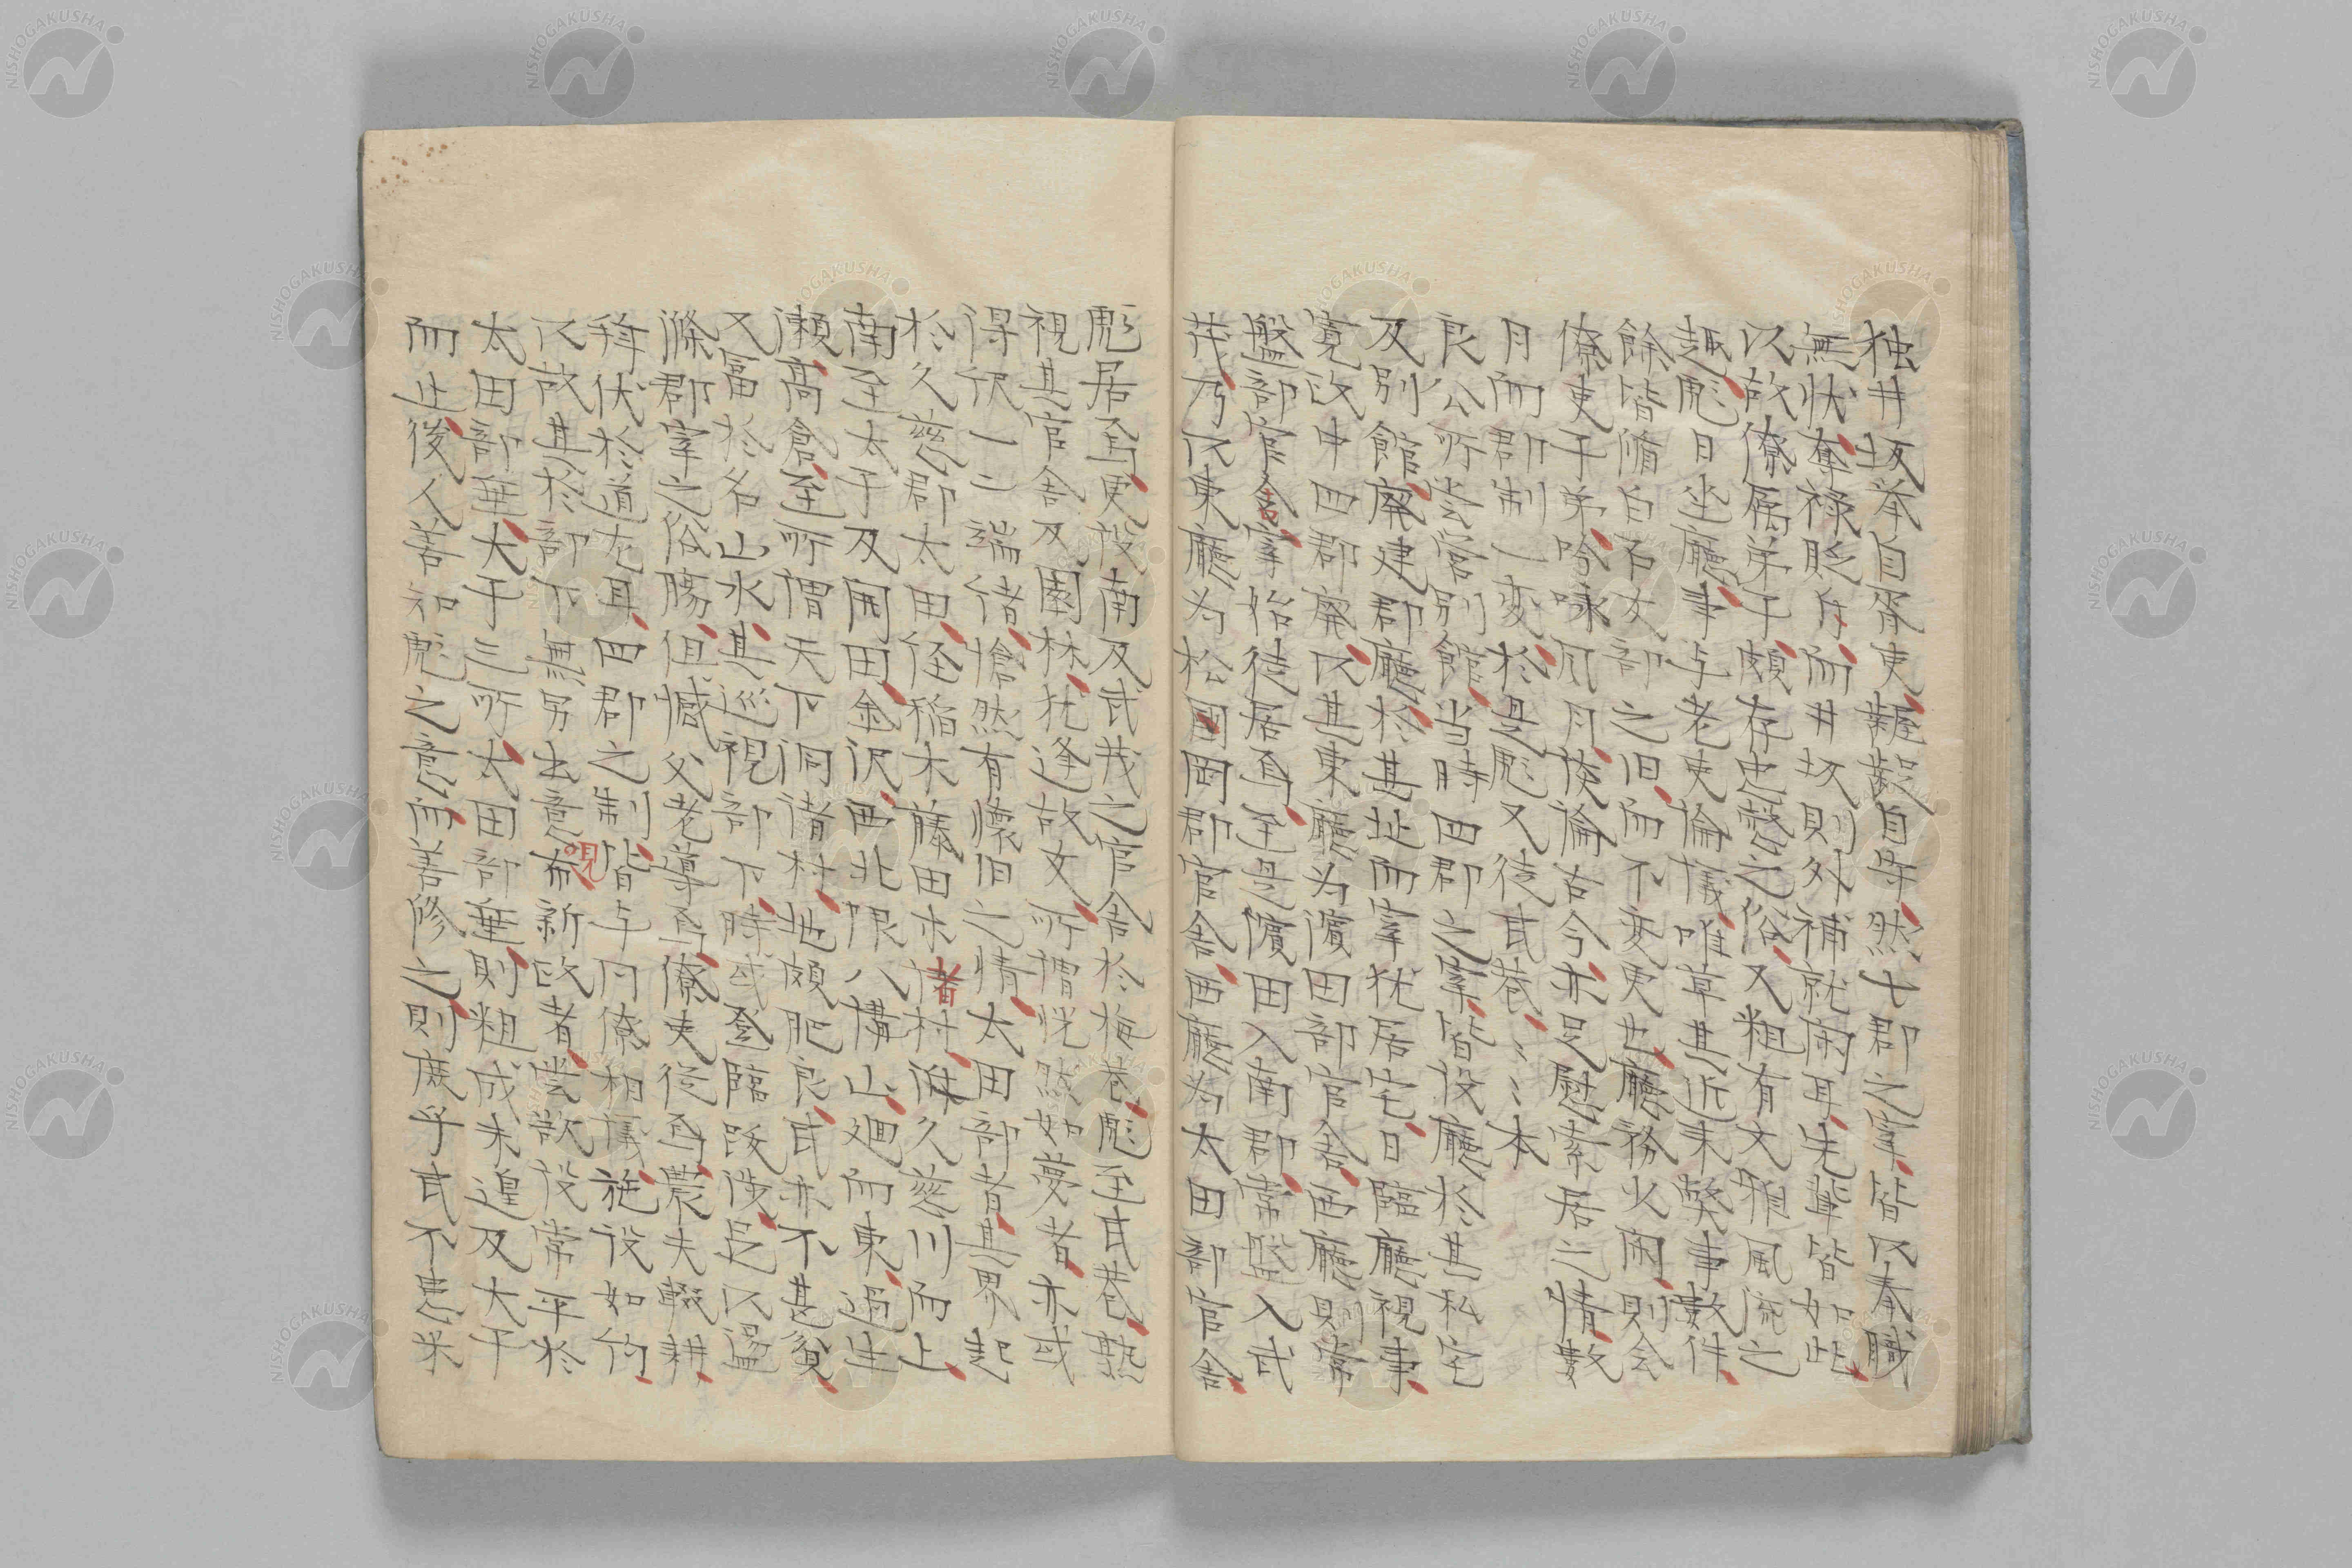 独井坂挙自胥吏齷齪自守然七郡之宰皆以奉職
無状奪禄貶斥而井坂則外補就閑耳先輩皆如此
以故僚属弟子頗存忠愨之俗又粗有文雅風流之
趣彪日坐廳事与老吏倫議唯草其近来弊事数件
餘皆脩白石文部之旧而不変更也廳務少閑則会
僚吏子弟吟咏風月談論古今亦足慰索居之情数
月而郡制一変於是彪又徒武巷〻〻本
良公所嘗営別館当時四郡之宰皆役廳於其私宅
及別館廃建郡廳於其址而宰猶居宅日臨廳視事
寛政中四郡廃以其東廳為濱田部官舎西廳則常
盤部官舎宰始徒居焉至是濱田入南郡常盤入武
茂乃以東廳為松岡郡官舎西廳為太田部官舎
彪居焉更設南及武茂之官舎於梅巷彪至武巷熟
視其官舎及園林托逢故文所謂恍然如夢者亦或
得伬一二端緒愴然有懐旧之情太田部者其界起
於久慈郡太田径稲木藤田亦諸村俫久慈川而上
南至太子及開田金沢西北限八構山廻而東過生
瀬高倉至所謂天下洞諸村地頗肥良民亦不甚貧
又富於名山水其巡視部下時或登臨跋渉足以盪
滌郡宰之俗腸但憾父老導焉僚吏従焉農夫輟耕
稗伏於道左耳四郡之制皆与同僚相議施設如約
以故其於部下無另出意布新政者嘗欲役常平於
太田部垂大子三所太田部垂則粗成未遑及大子
而止後人善知彪之意而善修之則庶乎民不患米
NISHOGAKUSHA